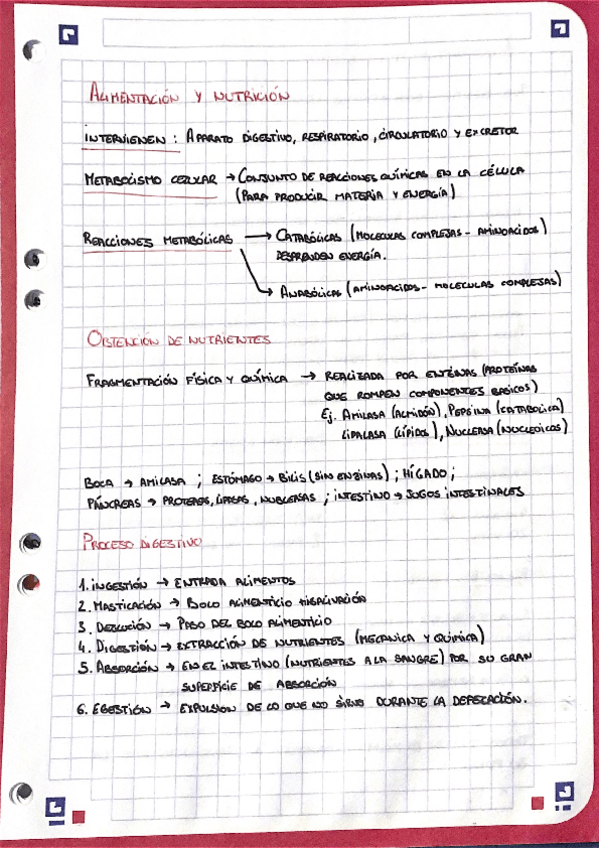 ALIMENTACIÓN Y NUTRICIÓN
INTERVIENEN : APARATO DIGESTIVO, RESPIRATORIO, CIRCULATORIO Y EXCRETOR
METABOLISMO CELULAR → CONJUNTO DE REACCIONES QUÍMICAS EN LA CÉLULA
(PARA PRODUCIR MATERIA Y ENERGÍA)
REACCIONES METABÓLICAS → CATABÓLICAS (MOLECULAS COMPLEJAS - AMINOACIDOS)
DESPRENDEN ENERGÍA.
→ ANABÓLICAS (AMINOACIDOS - MOLECULAS COMPLEJAS)
OBTENCIÓN DE NUTRIENTES
FRAGMENTACIÓN FÍSICA Y QUÍMICA → REALIZADA POR ENZIMAS (PROTEÍNAS
QUE ROMPEN COMPONENTES BASICOS)
Ej. AMILASA (ALMIDÓN), PEPSINA (CATABOLICA)
LIPALASA (LÍPIDOS), NUCLEASA (NUCLEOICOS)
BOCA → AMILASA ; ESTÓMAGO → BILIS (SIN ENZIMAS) ; HÍGADO ;
PÁNCREAS → PROTEASAS, LIPASAS, NUBLEASAS ; INTESTINO → JUGOS INTESTINALES
PROCESO DIGESTIVO
1. INGESTIÓN → ENTRADA ALIMENTOS
2. MASTICACIÓN → BOLO ALIMENTICIO
3. DEGLUCIÓN → PASO DEL BOLO ALIMENTICIO
4. DIGESTIÓN → EXTRACCIÓN DE NUTRIENTES (MECANICA Y QUIMICA)
5. ABSORCIÓN → EN EL INTESTINO (NUTRIENTES A LA SANGRE) POR SU GRAN
SUPERFICIE DE ABSORCIÓN
6. EGESTIÓN → EXPULSION DE LO QUE NO SIRVE DURANTE LA DEFECACIÓN.